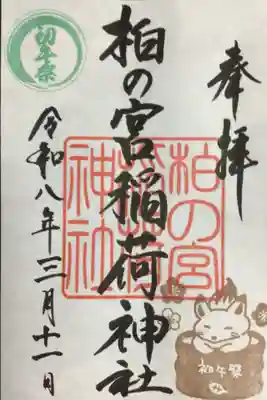 奉拝
柏の宮稲荷神社
柏の宮
稲荷
神社
令和八年三月十一日
初午祭
初午祭